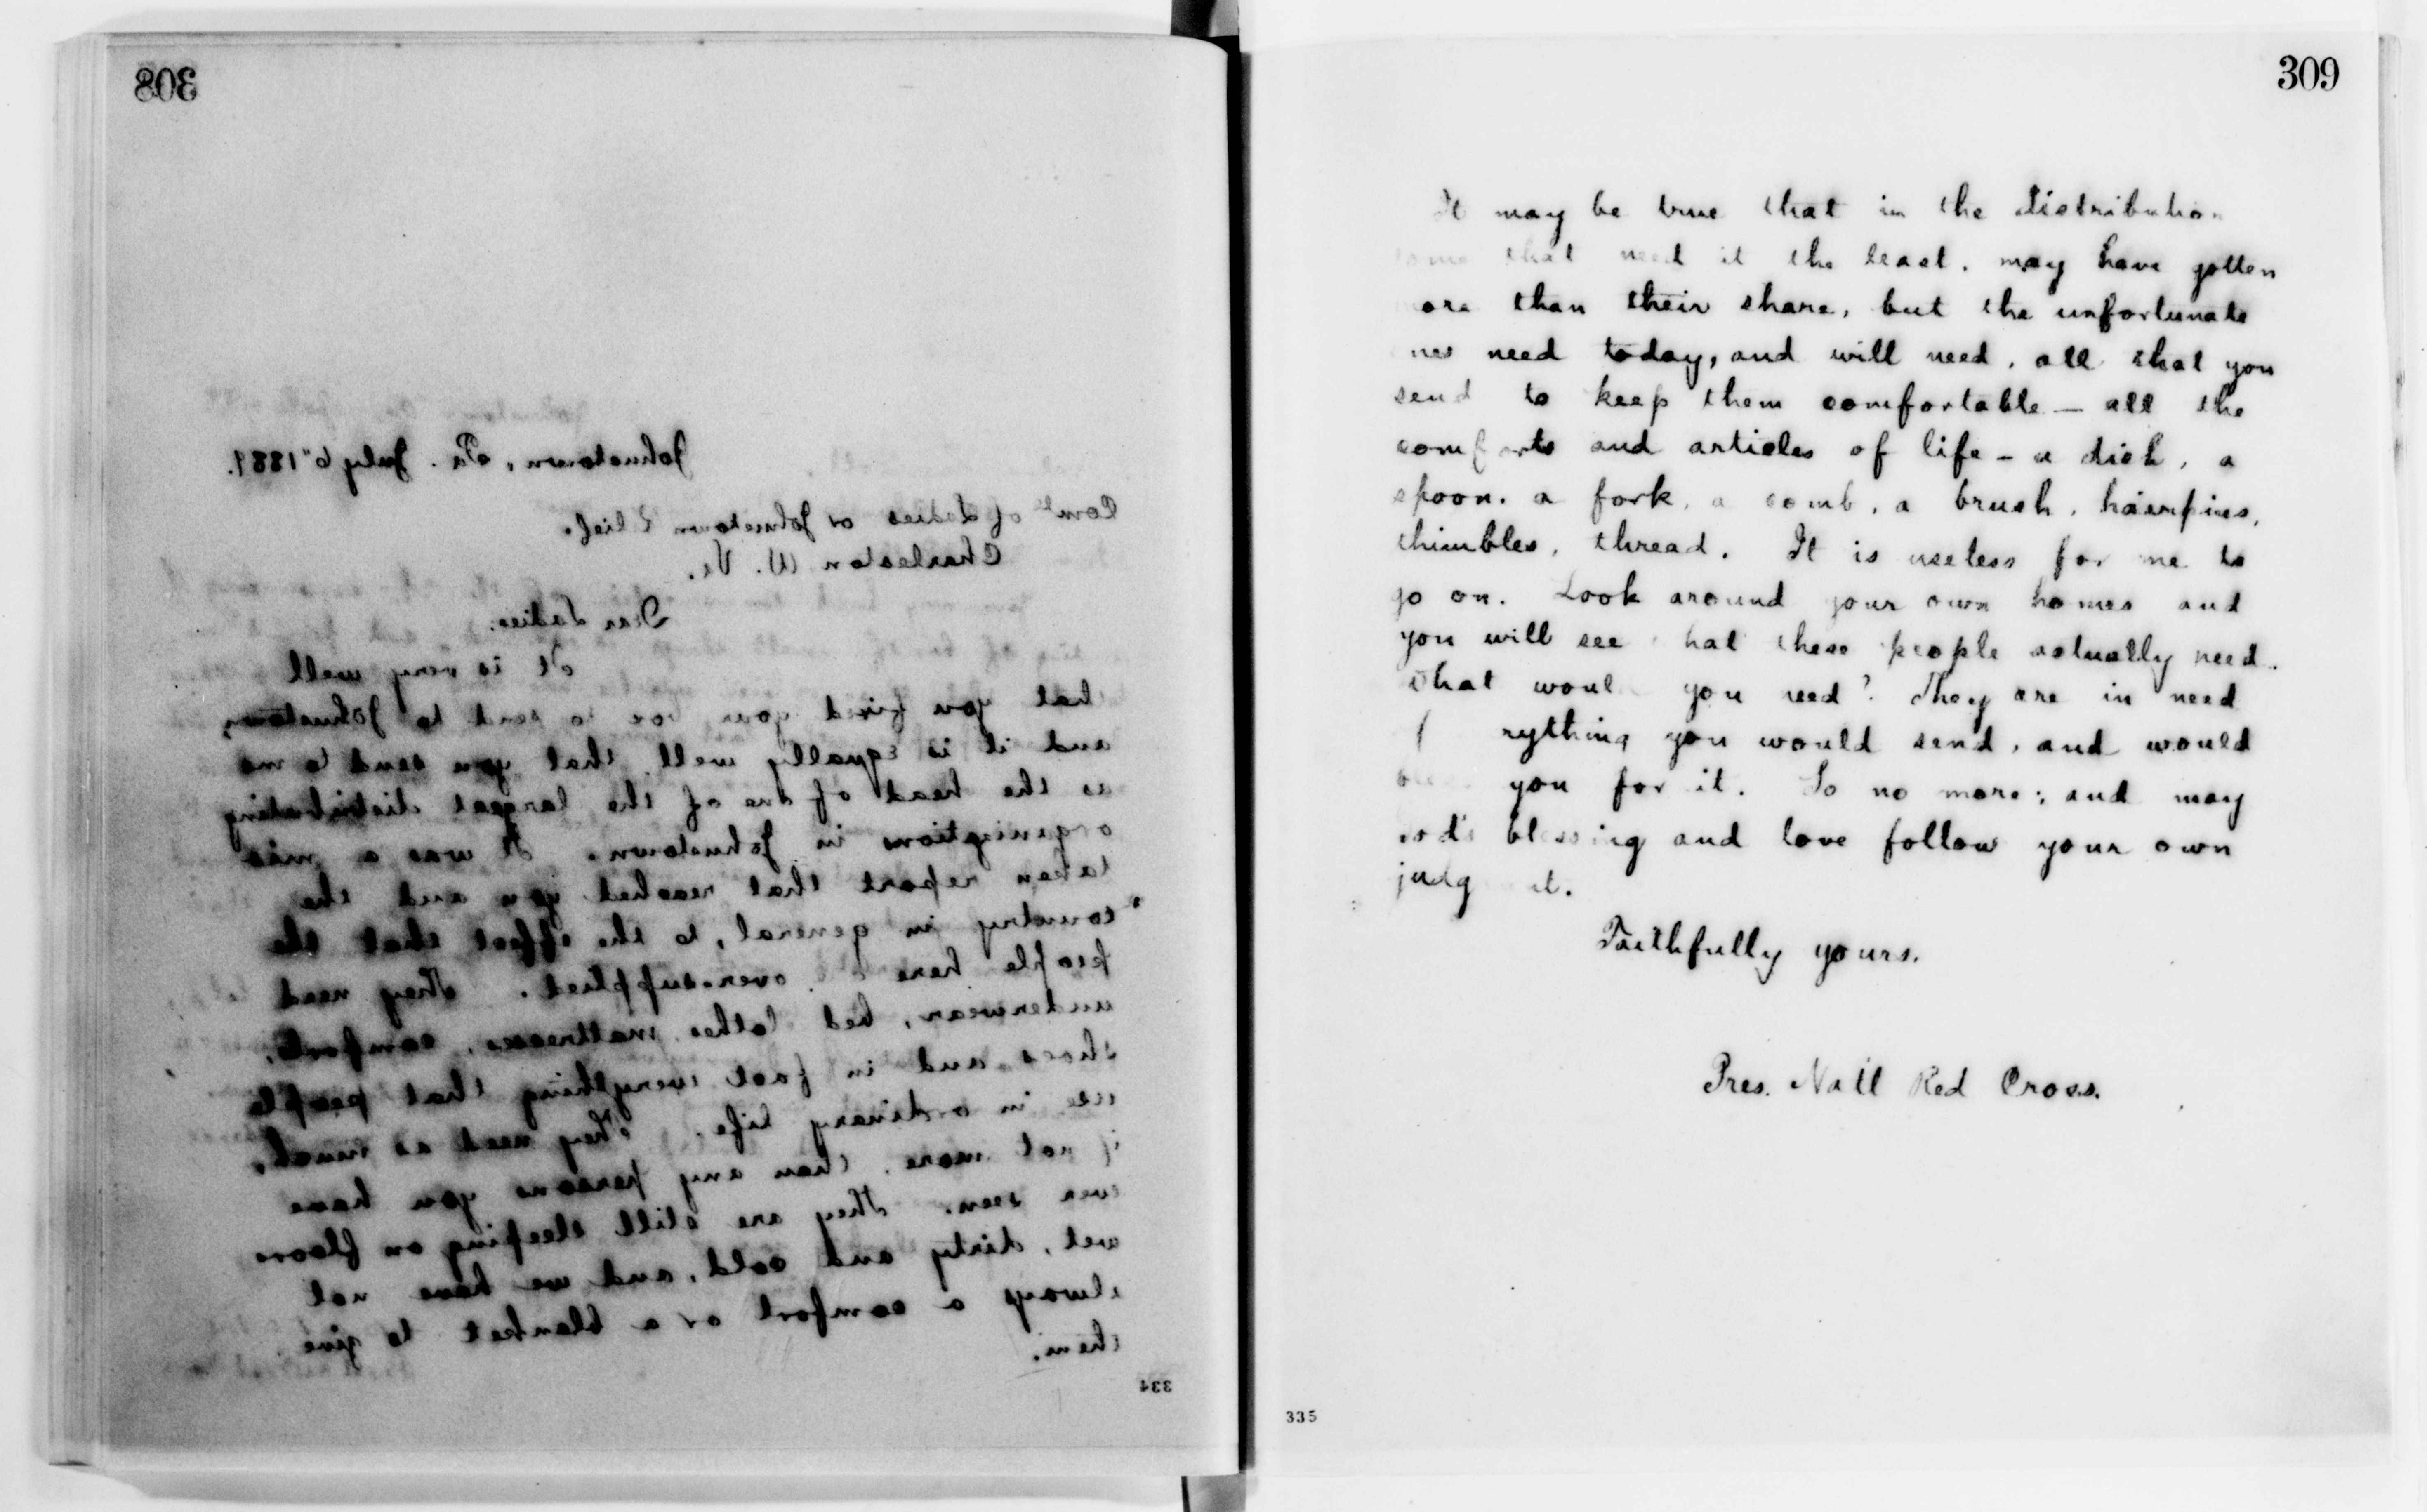 308
Johnstown, Pa. July 6" 1889.
of Ladies or Johnstown elief.
Charleston W. Va.
Dear Ladies:
It is very well
that you fixed your box to send to Johnstown,
and it is equally well that you send to me
as the head of one of the largest distributing
organizations in Johnstown. It was a mis
taken report that reached you and the
country in general, to the effect that the
people here oversupplied. They need
underwear, bed clothes, mattresses, comforts,
shoes and in fact everything that people
use in ordinary life. They need as much,
if not more, than any persons you have
ever seen. They are still sleeping on floors
wet, dirty and cold, and we have not
always a comfort or a blanket to give
them.
334
309
It may be true that in the distribution
some that need it the least, may have gotten
more than their share, but the unfortunate
ones need today, and will need, all that you
send to keep them comfortable — all the
comforts and articles of life — a dish, a
spoon, a fork, a comb, a brush, hairpins,
thimbles, thread. It is useless for me to
go on. Look around your own homes and
you will see what these people actually need.
What would you need? They are in need
rything you would send, and would
bless you for it. So no more; and may
God's blessing and love follow your own
judg nt.
Faithfully yours,
Pres. Nat'l Red Cross.
335